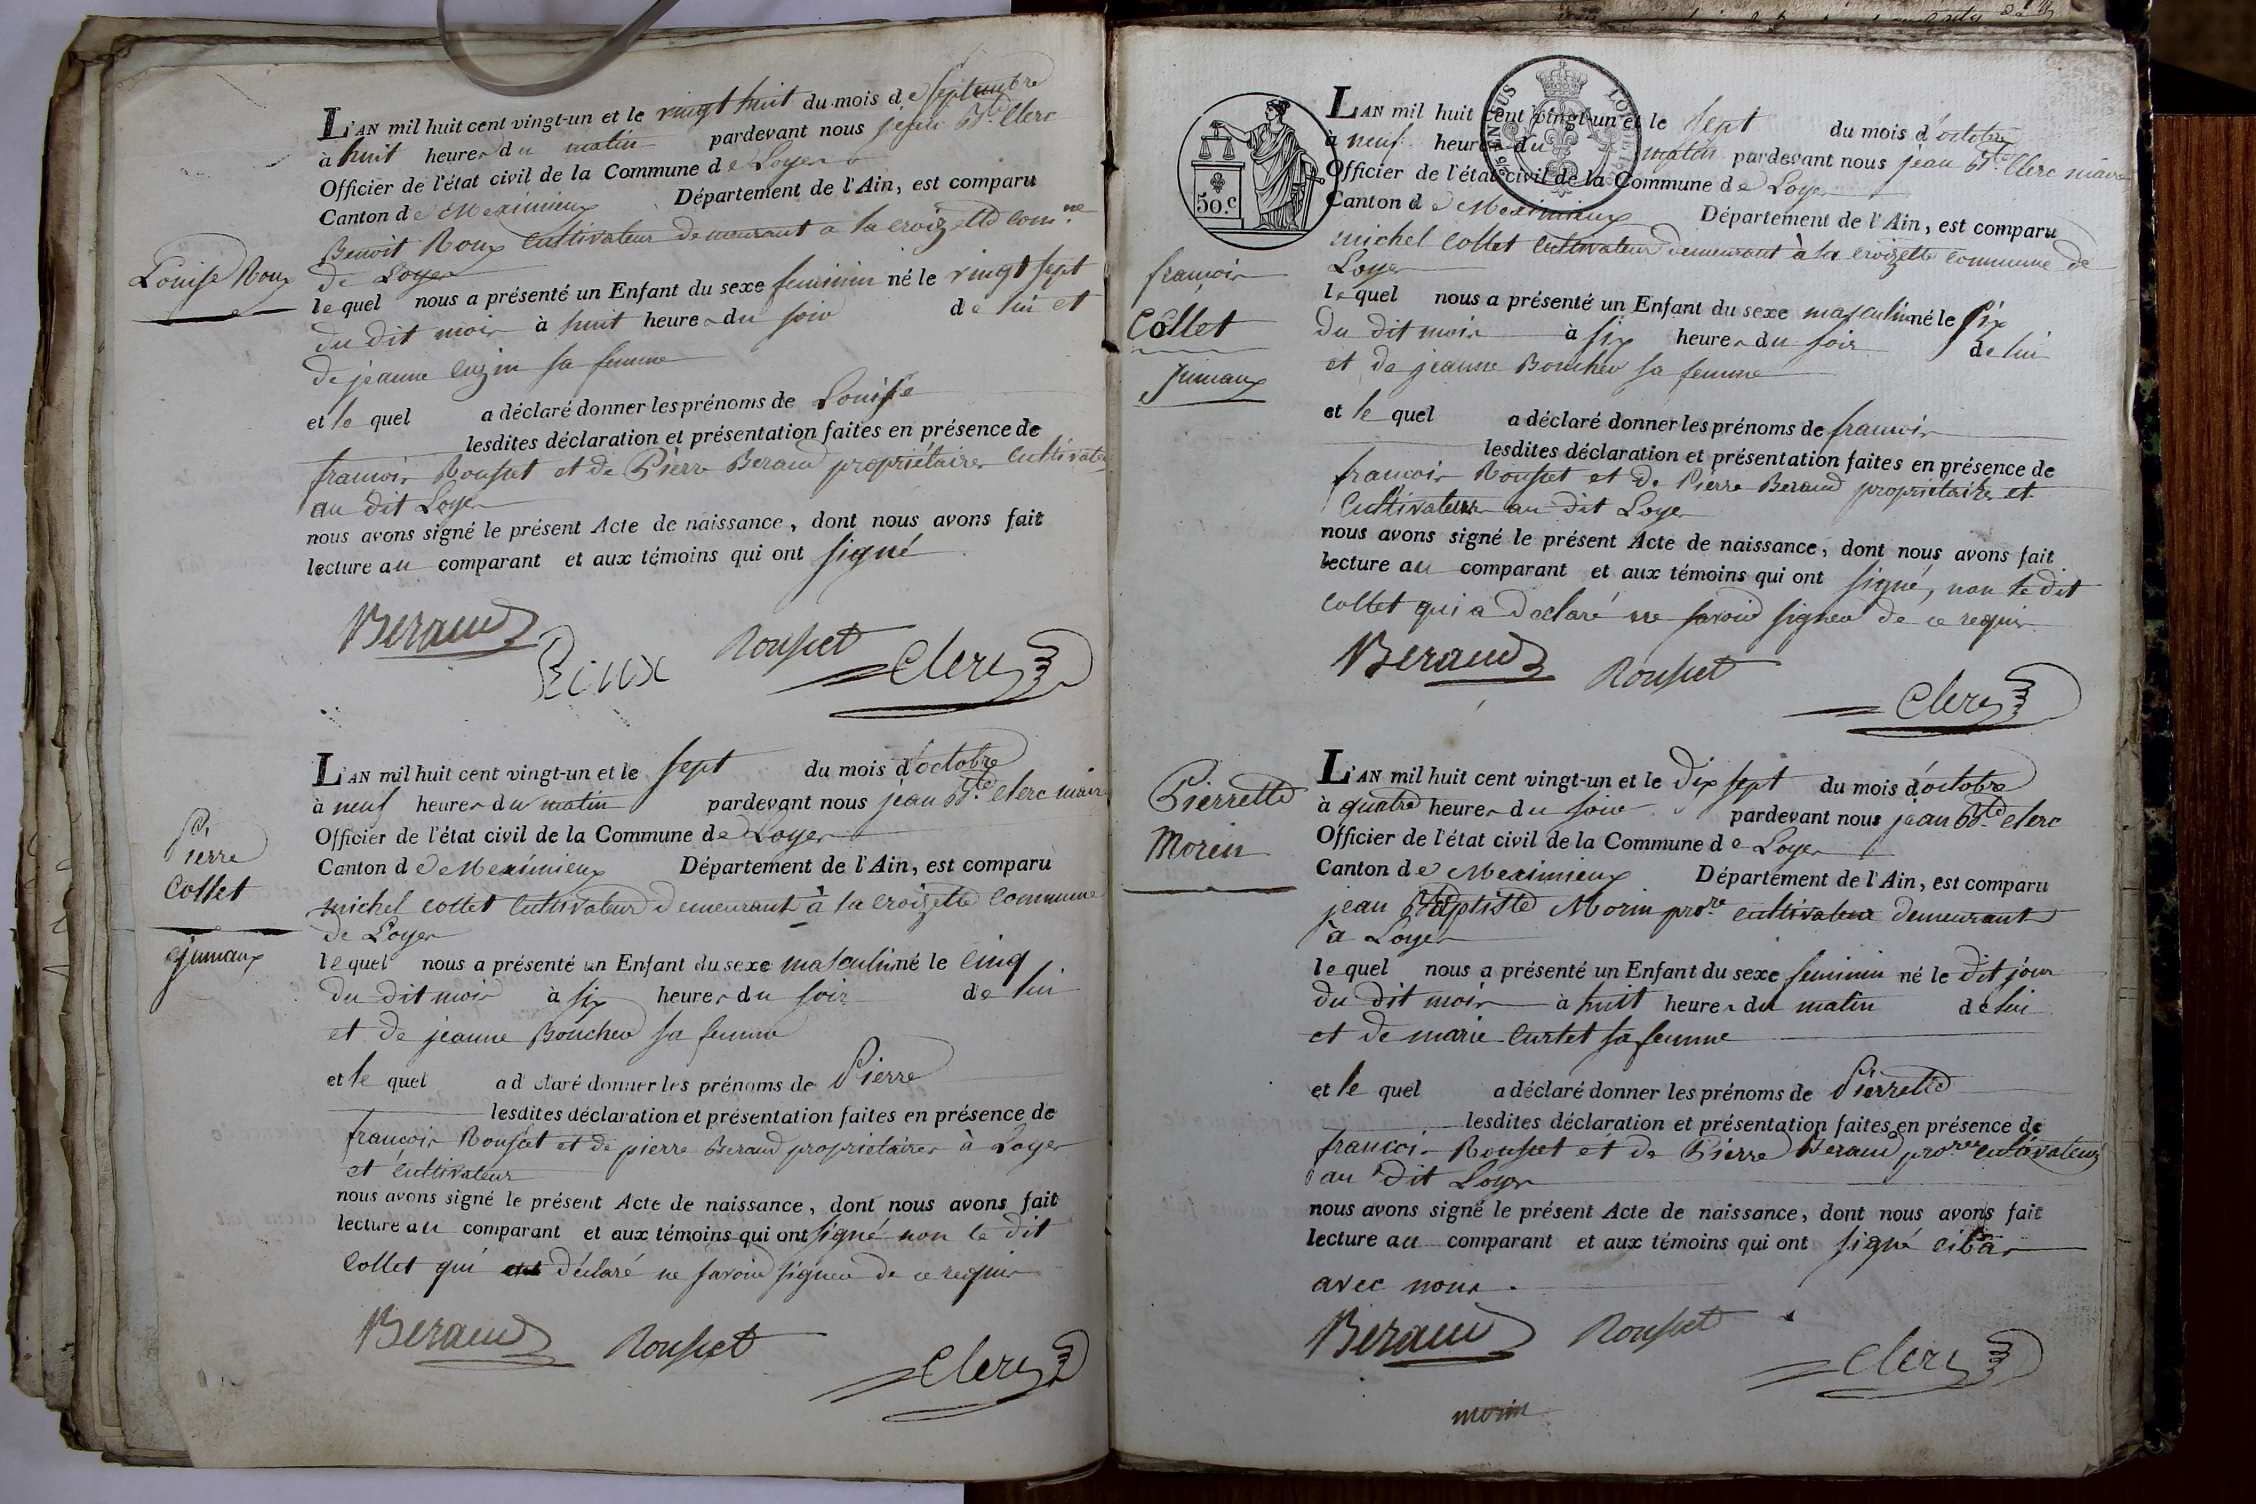 Louise Roux
L'AN mil huit cent vingt-un et le vingt huit du mois de Septembre
à huit heures du matin pardevant nous jean Bte Clerc
Officier de l'état civil de la Commune de Loyes
Canton de Meximieux Département de l'Ain, est comparu
Benoit Roux Cultivateur demeurant a la croizette comne
de Loyes
lequel nous a présenté un Enfant du sexe feminin né le vingt sept
du dit mois à huit heures du soir de lui et
de jeanne Cuzin sa femme
et le quel a déclaré donner les prénoms de Louise
lesdites déclaration et présentation faites en présence de
francois Rousset et de Pierre Beraud propriétaires Cultivateurs
au dit Loyes
nous avons signé le présent Acte de naissance, dont nous avons fait
lecture au comparant et aux témoins qui ont signé
Beraud
Roux
Rousset
Clerc
Pierre
Collet
Jumaux
L'AN mil huit cent vingt-un et le sept du mois d'octobre
à neuf heures du matin pardevant nous jean Bte Clerc maire
Officier de l'état civil de la Commune de Loyes
Canton de Meximieux Département de l'Ain, est comparu
michel collet Cultivateur demeurant à la croizette commune
de Loyes
lequel nous a présenté un Enfant du sexe masculin né le cinq
du dit mois à six heures du soir de lui
et de jeanne Boucher sa femme
et le quel a déclaré donner les prénoms de Pierre
lesdites déclaration et présentation faites en présence de
francois Rousset et de pierre Beraud propriétaires à Loyes
et cultivateurs
nous avons signé le présent Acte de naissance, dont nous avons fait
lecture au comparant et aux témoins qui ont signé non le dit
Collet qui déclaré ne savoir signer de ce requis
Beraud
Rousset
Clerc
50.c
francois
Collet
Jumaux
L'AN mil huit cent vingt-un et le sept du mois d'octobre
à neuf heures du matin pardevant nous jean Bte Clerc maire
Officier de l'état civil de la Commune de Loyes
Canton de Meximieux Département de l'Ain, est comparu
michel Collet Cultivateur demeurant à la croizette commune de
Loyes
lequel nous a présenté un Enfant du sexe masculin né le six
du dit mois à six heures du soir de lui
et de jeanne Boucher sa femme
et le quel a déclaré donner les prénoms de francois
lesdites déclaration et présentation faites en présence de
francois Rousset et de Pierre Beraud propriétaires et
Cultivateurs au dit Loyes
nous avons signé le présent Acte de naissance, dont nous avons fait
lecture au comparant et aux témoins qui ont signé, non le dit
Collet qui a declaré ne savoir signer de ce requis
Beraud
Rousset
Clerc
Pierrette
Morin
L'AN mil huit cent vingt-un et le Dix sept du mois d'octobre
à quatre heures du soir pardevant nous jean Bte clerc
Officier de l'état civil de la Commune de Loyes
Canton de Meximieux Département de l'Ain, est comparu
jean Baptiste Morin prore cultivateur demeurant
à Loyes
lequel nous a présenté un Enfant du sexe feminin né le dit jour
du dit mois à huit heures du matin de lui
et de marie Curtet sa femme
et le quel a déclaré donner les prénoms de Pierrette
lesdites déclaration et présentation faites en présence de
francois Rousset et de Pierre Beraud prores cultivateurs
au dit Loyes
nous avons signé le présent Acte de naissance, dont nous avons fait
lecture au comparant et aux témoins qui ont signé
avec nous.
Beraud
Rousset
Clerc
morin